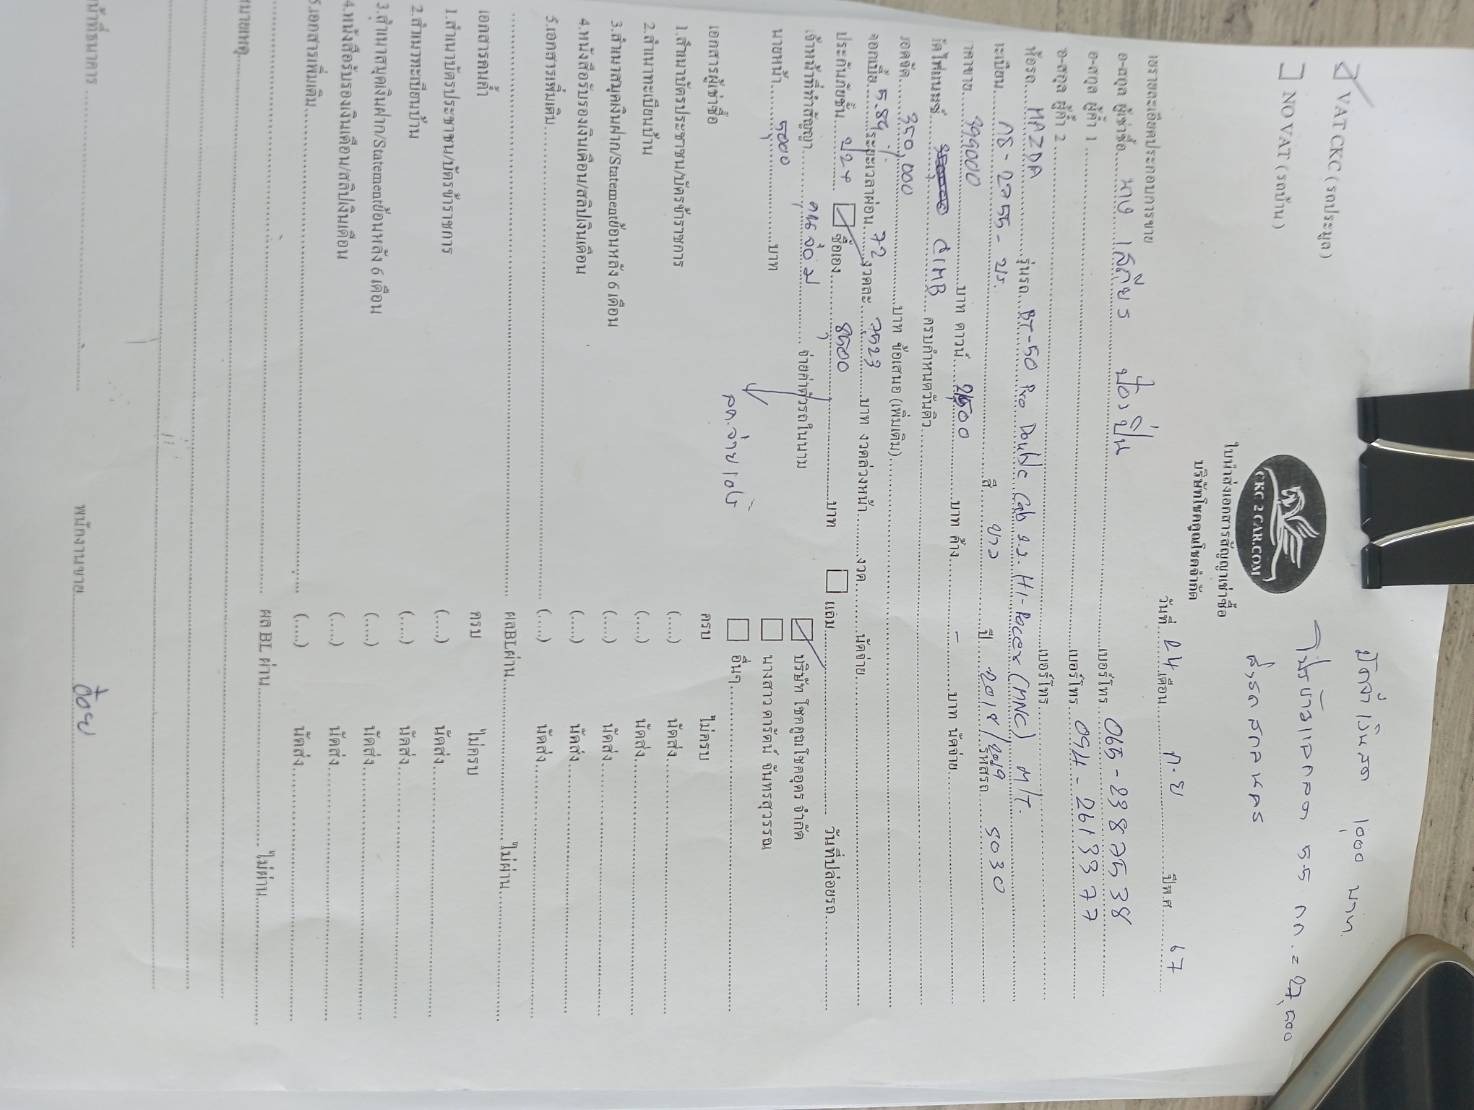 มัดจำเงินสด 1,000 บาท
☑ VAT CKC ( รถประมูล )
55 กก. = 27,500
☐ NO VAT ( รถบ้าน )
CKC 2 CAR.COM
ส่งรถสกลนคร
ใบนำส่งเอกสารสัญญาเช่าซื้อ
บริษัทโชคคูณโชคจำกัด
วันที่ 24 เดือน ก.ย ปีพ.ศ 67
รายละเอียดประกอบการขาย
อ-สกุล ผู้เช่าซื้อ นาง เสถียร เบอร์โทร 065-2387538
อ-สกุล ผู้ค้ำ 1 เบอร์โทร 094-2613977
อ-สกุล ผู้ค้ำ 2 เบอร์โทร
ห้อรถ MAZDA รุ่นรถ BT-50 Pro Double Cab 2.2 Hi-Racer (MNC) M/T.
ทะเบียน 2755 - สี ขาว ปี 2018/2019 รหัสรถ 5030
าคาขาย 399000 บาท ดาวน์ บาท ค้าง - บาท นัดจ่าย
ัดไฟแนนซ์ CIMB ครบกำหนดวันคิว
อดจัด 350,000 บาท ข้อเสนอ (เพิ่มเติม)
ดอกเบี้ย 5.89 % ระยะเวลาผ่อน 72 งวดละ 7523 บาท งวดล่วงหน้า งวด นัดจ่าย
ประกันภัยชั้น ป2+ ☑ ซื้อเอง 8500 บาท ☐ แถม วันที่ปล่อยรถ
เจ้าหน้าที่ทำสัญญา จ่ายค่าตัวรถในนาม ☑ บริษัท โชคคูณโชคอุดร จำกัด
นายหน้า 5000 บาท ☐ นางสาว ดารัตน์ จันทรสุวรรณ
ลค.จ่ายเอง ☐ อื่นๆ
เอกสารผู้เช่าซื้อ ครบ ไม่ครบ
1.สำเนาบัตรประชาชน/บัตรข้าราชการ (....) นัดส่ง
2.สำเนาทะเบียนบ้าน (....) นัดส่ง
3.สำเนาสมุดเงินฝาก/Statementย้อนหลัง 6 เดือน (....) นัดส่ง
4.หนังสือรับรองเงินเดือน/สลิปเงินเดือน (....) นัดส่ง
5.เอกสารเพิ่มเติม (....) นัดส่ง
ผลBLผ่าน ไม่ผ่าน
เอกสารคนค้ำ ครบ ไม่ครบ
1.สำเนาบัตรประชาชน/บัตรข้าราชการ (....) นัดส่ง
2.สำเนาทะเบียนบ้าน (....) นัดส่ง
3.สำเนาสมุดเงินฝาก/Statementย้อนหลัง 6 เดือน (....) นัดส่ง
4.หนังสือรับรองเงินเดือน/สลิปเงินเดือน (....) นัดส่ง
5.เอกสารเพิ่มเติม (....) นัดส่ง
ผล BL ผ่าน ไม่ผ่าน
หมายเหตุ
น้าที่ธนาคาร พนักงานขาย อ้อย